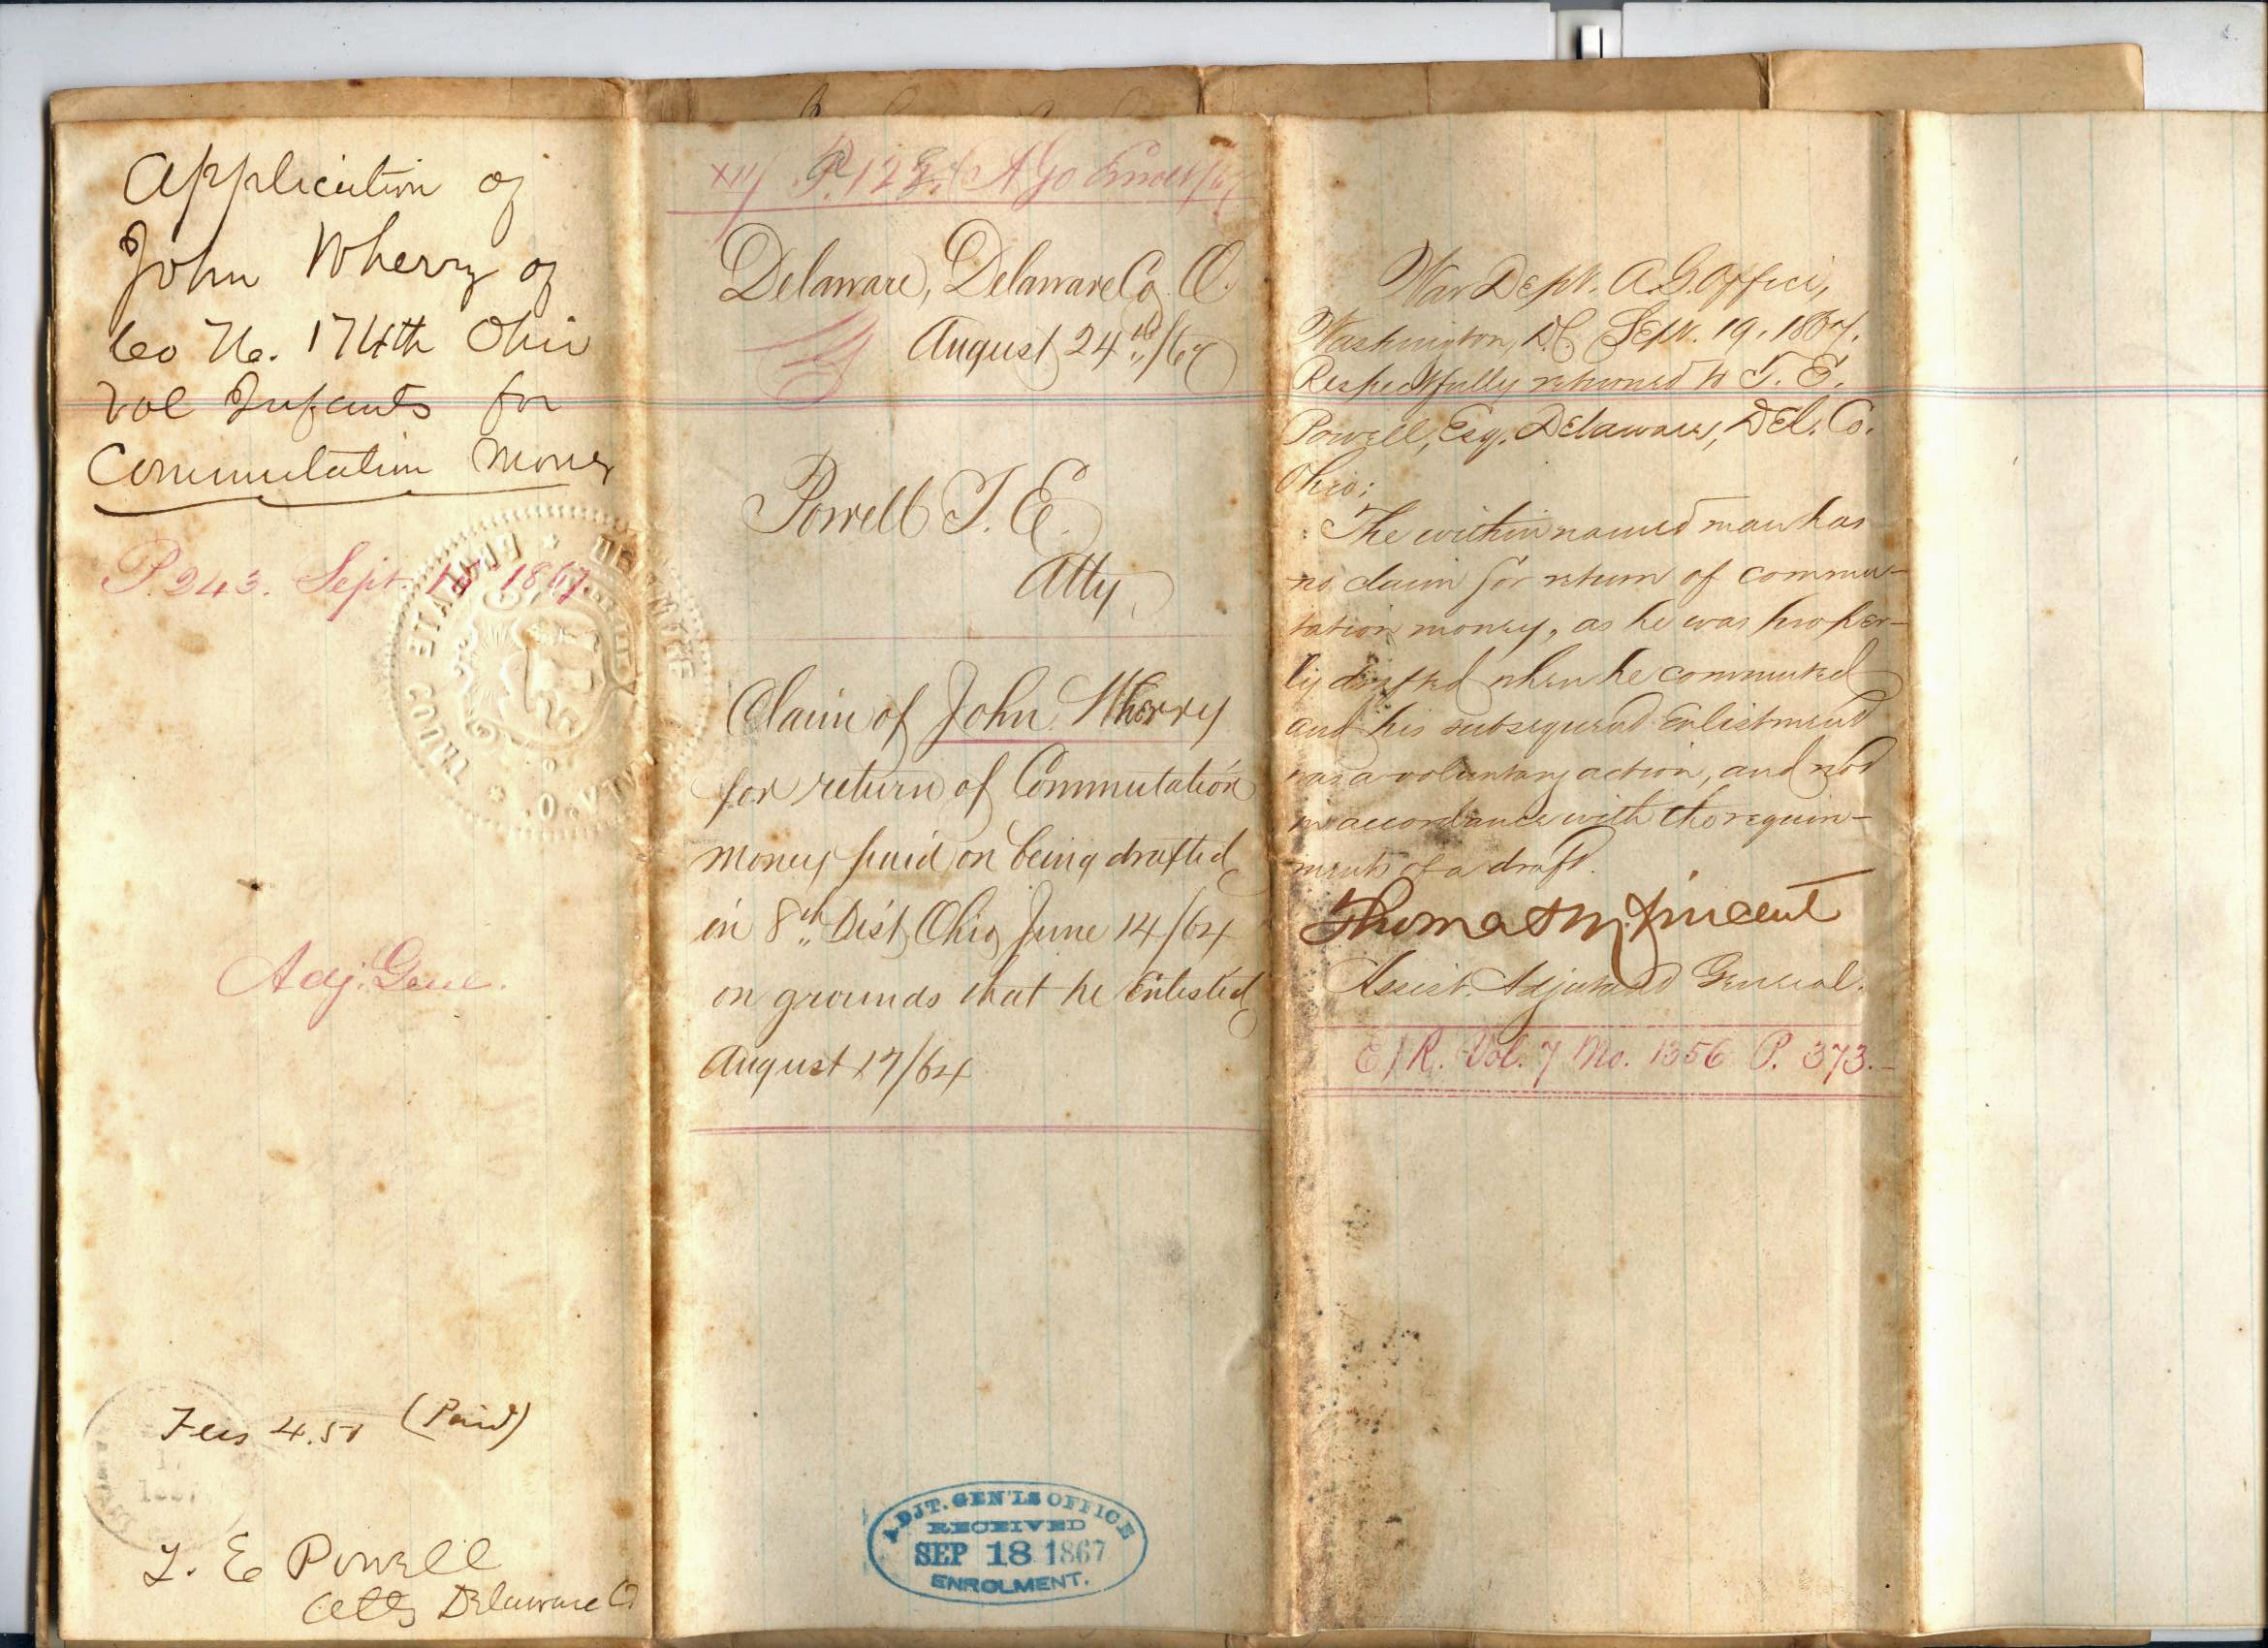 Application of
John Wherry of
Co K. 174th Ohio
Vol Infants for
Commutation Money
P. 243. Sept. 1867.
Adj. Genl.
Fees 4.50 (Paid)
T. E Powell
Atty Delaware O
P. 12 AGO Enrolt/67
Delaware, Delaware Co. O.
August 24th/67
Powell T. E.
Atty,
Claim of John Wherry
for return of Commutation
money paid on being drafted
in 8th Dist, Ohio, June 14/64
on grounds that he Enlisted
August 17/64
ADJT. GEN'LS OFFICE
RECEIVED
SEP 18 1867
ENROLMENT.
War Dept. A.G. Office,
Washington, D.C. Sept. 19. 1867.
Respectfully returned to T. E.
Powell, Esq. Delaware, Del. Co.
Ohio;
The within named man has
no claim for return of commu-
tation money, as he was proper-
ly drafted when he commuted
and his subsequent Enlistment
was a voluntary action, and not
in accordance with the requir-
ments of a draft.
Thomas M. Vincent
Assist. Adjutant General.
E/R. Vol. 7 No. 1356 P. 373.